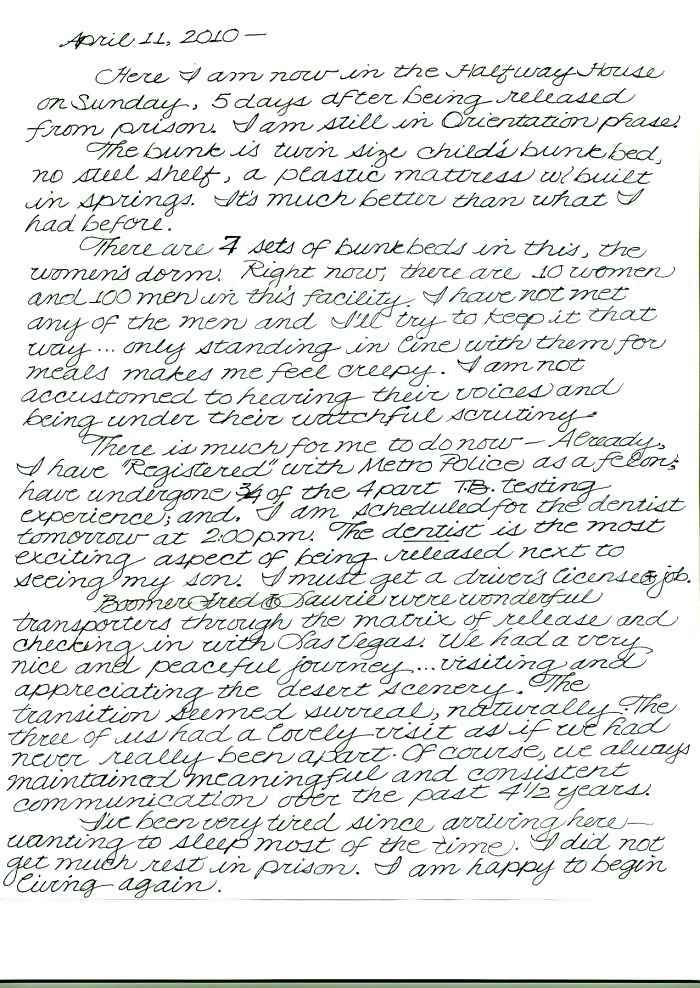 April 11, 2010 —
Here I am now in the Halfway House
on Sunday, 5 days after being released
from prison. I am still in Orientation phase.
The bunk is twin size child's bunk bed,
no steel shelf, a plastic mattress w/ built
in springs. It's much better than what I
had before.
There are 7 sets of bunkbeds in this, the
women's dorm. Right now, there are 10 women
and 100 men in this facility. I have not met
any of the men and I'll try to keep it that
way... only standing in line with them for
meals makes me feel creepy. I am not
accustomed to hearing their voices and
being under their watchful scrutiny.
There is much for me to do now – Already,
I have "Registered" with Metro Police as a felon;
have undergone 3/4 of the 4 part T.B. testing
experience; and. I am scheduled for the dentist
tomorrow at 2:00 pm. The dentist is the most
exciting aspect of being released next to
seeing my son. I must get a driver's license & job.
Boomer Fred & Laurie were wonderful
transporters through the matrix of release and
checking in with Las Vegas. We had a very
nice and peaceful journey... visiting and
appreciating the desert scenery. The
transition seemed surreal, naturally. The
three of us had a lovely visit as if we had
never really been apart. Of course, we always
maintained meaningful and consistent
communication over the past 4 1/2 years.
I've been very tired since arriving here —
wanting to sleep most of the time. I did not
get much rest in prison. I am happy to begin
living again.